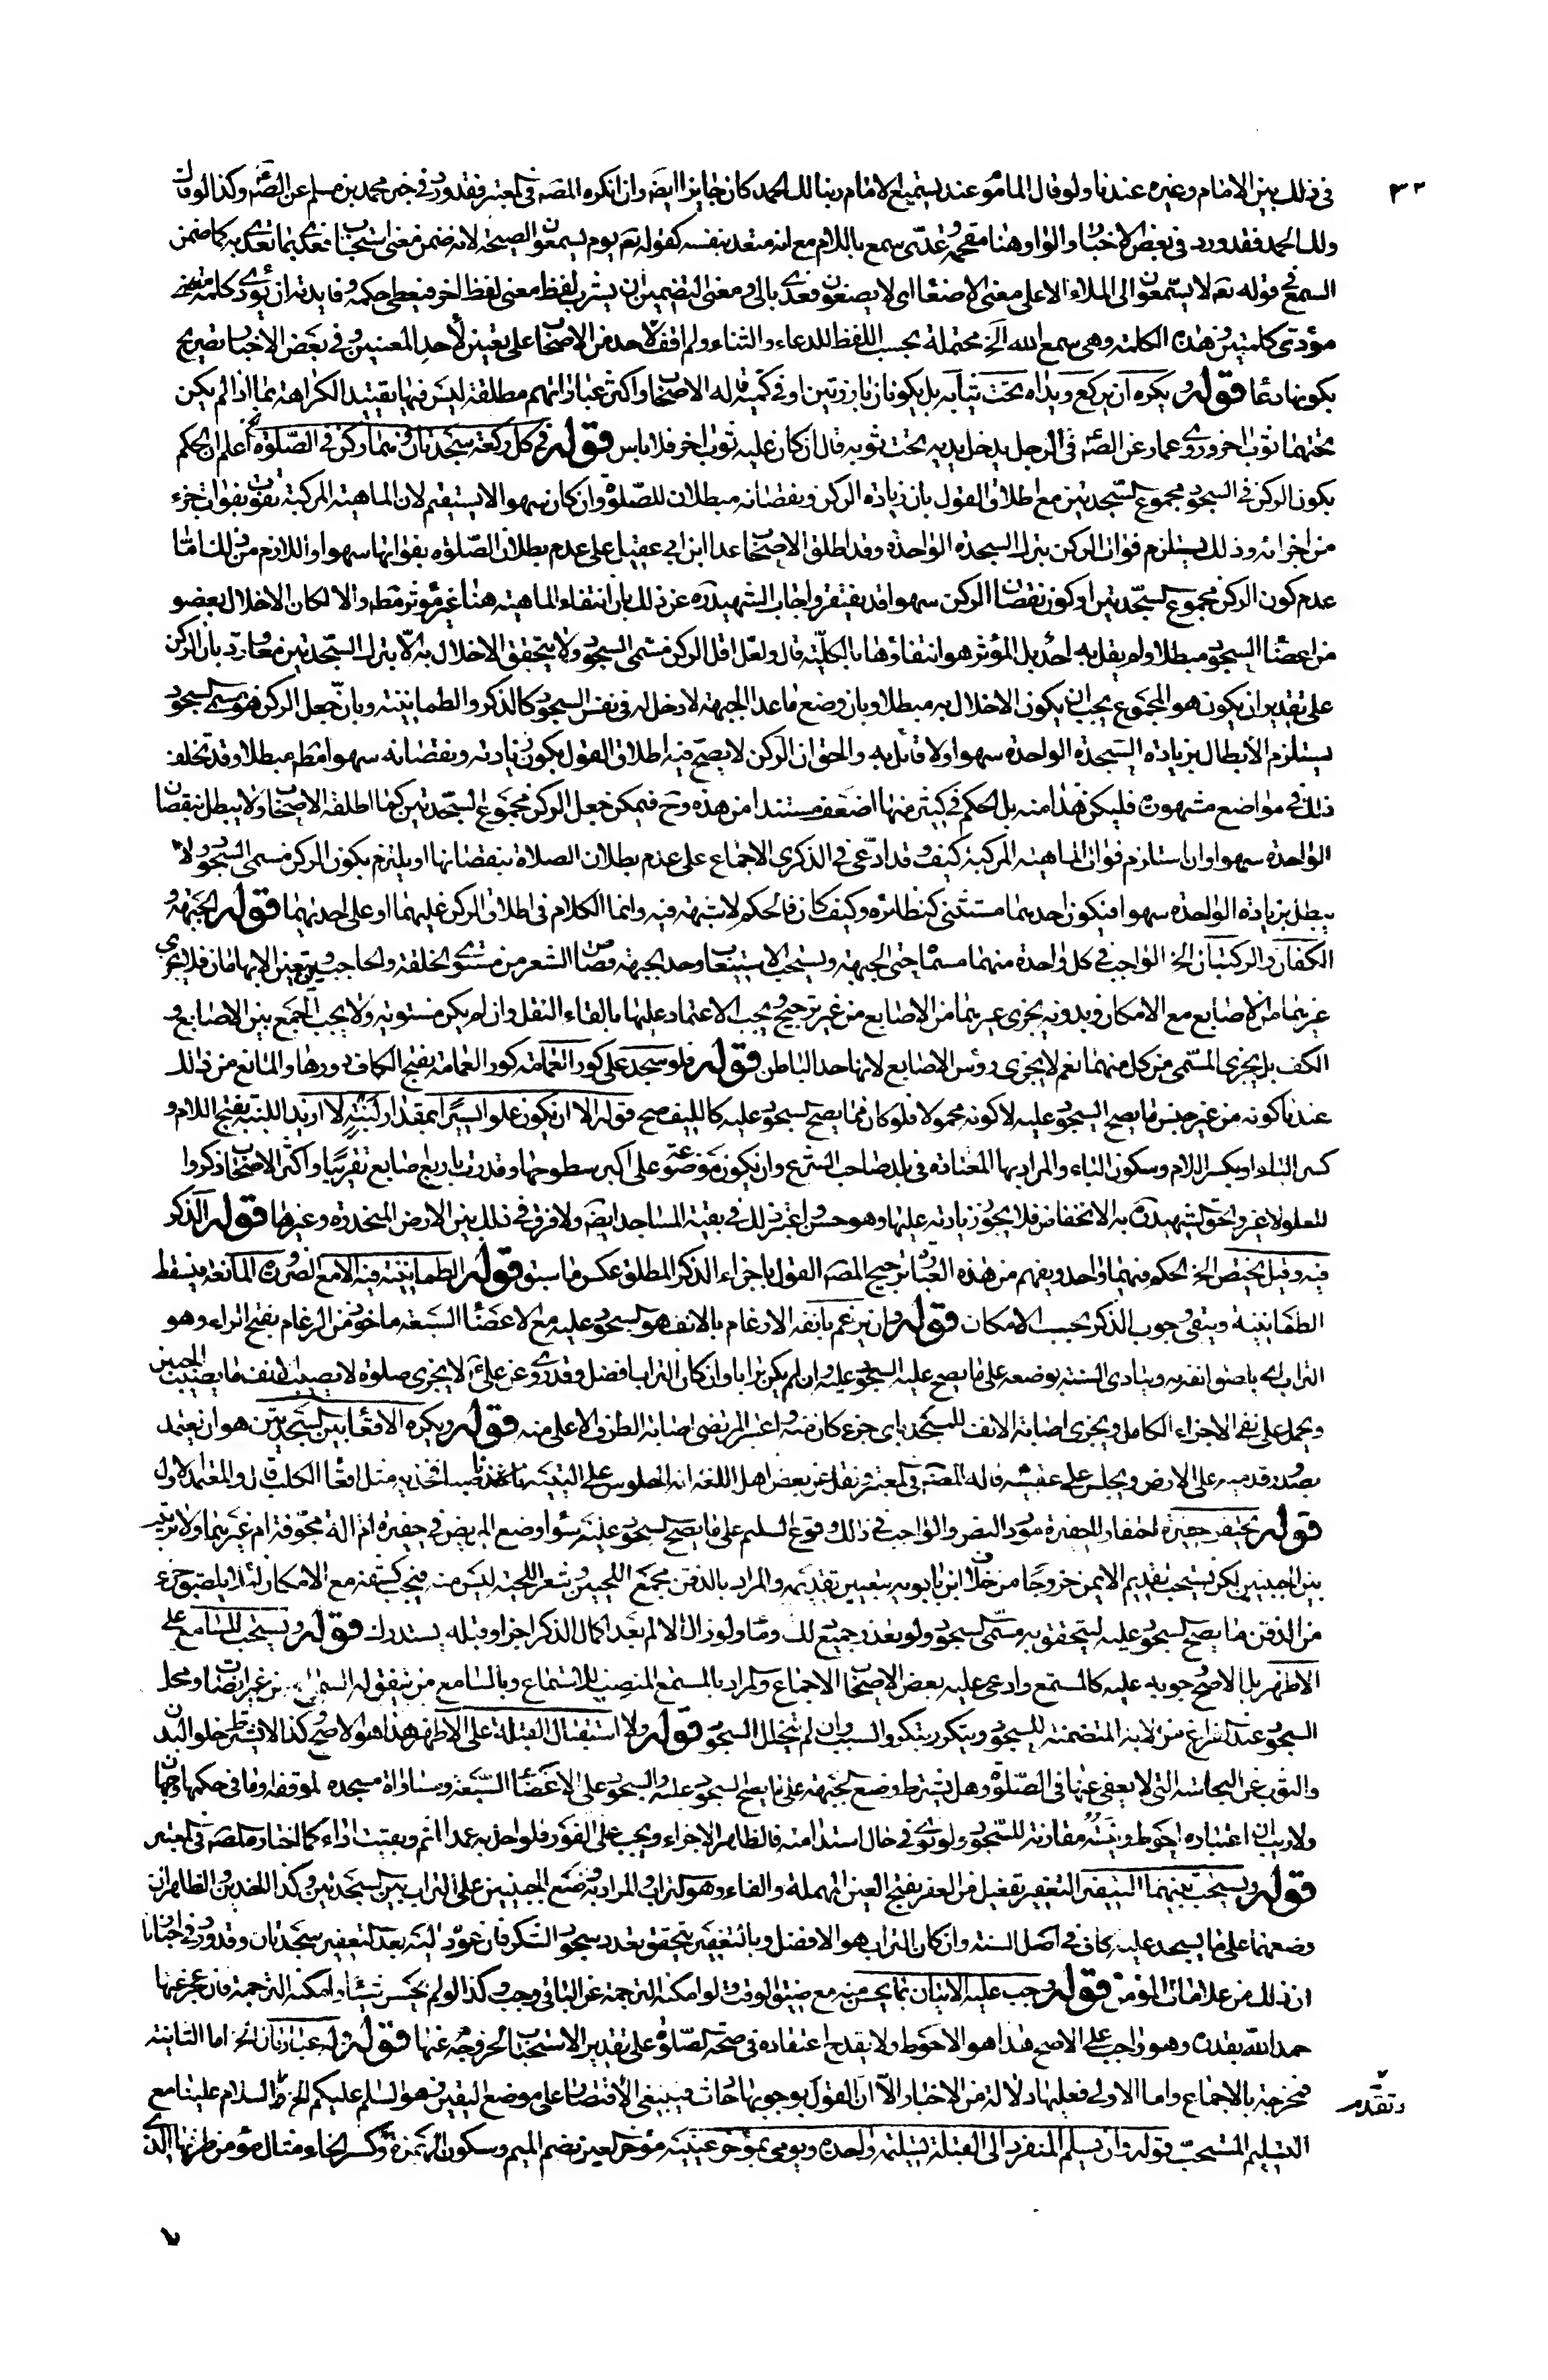 ٣٢
في ذلك بين الامام وغيره عندنا ولو قال المأموم عند تسميع الامام ربنا لك الحمد كان جايزا ايضا وان انكره المصه في المعتبر فقد ورد في خبر محمد بن مسلم عن الصه وكذا لو قال
ولك الحمد فقد ورد في بعض الاخبار والواو هنا مقحمة وعدّى سمع باللام مع انه متعد بنفسه كقوله تعم يوم يسمعون الصيحة لانه ضمن معنى استجاب فعدى بما تعدى به كما ضمن
السمع في قوله تعم لا يسّمعون الى الملاء الاعلى معنى الاصغاء اى لا يصغون فعدى بالى ومعنى التضمين ان يشرب لفظ معنى لفظ اخر فيعطى حكمه وفايدته ان يؤدى كلمة
مؤدّى كلمتين وهذه الكلمة وهي سمع الله الخ محتملة بحسب اللفظ للدعاء والثناء ولم اقف لاحد من الاصحاب على تعيين لأحد المعنيين وفي بعض الاخبار تصريح
بكونها دعاء قوله ويكره ان يركع ويداه تحت ثيابه بل يكونان بارزتين او في كمّيه قاله الاصحاب واكثر عباراتهم مطلقة ليس فيها تقييد الكراهة بما اذا لم يكن
تحتهما ثوب اخر وروى عمار عن الصه في الرجل يدخل يديه تحت ثوبه قال ان كان عليه ثوب اخر فلا باس قوله في كل ركعة سجدتان وهما ركن في الصّلوة الخ اعلم ان الحكم
بكون الركن في السجود مجموع السّجدتين مع اطلاق القول بان زيادة الركن ونقصانه مبطلان للصّلوة وان كان سهوا لا يستقيم لان الماهية المركبة تفوت بفوات جزء
من اجزائه وذلك يستلزم فوات الركن بترك السجدة الواحدة وقد اطلق الاصحاب عدا ابن ابي عقيل على عدم بطلان الصّلوة بفواتها سهوا واللازم من ذلك امّا
عدم كون الركن مجموع السّجدتين او كون نقصان الركن سهوا قد يغتفر واجاب الشهيد ره عن ذلك بان انتفاء الماهية هنا غير مؤثر مطم والا لكان الاخلال بعضو
من اعضاء السجود مبطلا ولم يقل به احد بل المؤثر هو انتفاؤها بالكلّية قال ولعل اقل الركن مسمى السجود ولا يتحقق الاخلال به الّا بترك السّجدتين معا وردّ بان الركن
على تقدير ان يكون هو المجموع يجب ان يكون الاخلال به مبطلا وبان وضع ما عدا الجبهة لا دخل له في نفس السجود كالذكر والطمانينة وبانّ جعل الركن هو مسمى السجود
يستلزم الابطال بزيادة السجدة الواحدة سهوا ولا قائل به والحق ان الركن لا يصحّ فيه اطلاق القول بكون زيادته ونقصانه سهوا مطم مبطلا وقد تخلف
ذلك في مواضع مشهورة فليكن هذا منه بل الحكم في كثير منها اضعف مستندا من هذه وح فيمكن جعل الركن مجموع السّجدتين كما اطلقه الاصحاب ولا يبطل بنقصان
الواحدة سهوا وان استلزم فوات الماهية المركبة كيف وقد ادّعى في الذكرى الاجماع على عدم بطلان الصلاة بنقصانها او يلتزم بكون الركن مسمى السجود ولا
يبطل بزيادة الواحدة سهوا فيكون احديهما مستثنى كنظائره وكيف كان فالحكم لا شبهة فيه وانما الكلام في اطلاق الركن عليهما او على احديهما قوله الجبهة و
الكفان والركبتان الخ الواجب في كل واحدة منهما مسمّاه حتى الجبهة ويستحب الاستيعاب وحد الجبهة قصاص الشعر من مستوى الخلقة والحاجب ويتعين الابهامان فلا يجزي
غيرهما من الاصابع مع الامكان وبدونه يجزى غيرهما من الاصابع من غير ترجيح ويجب الاعتماد عليها بالقاء الثقل وان لم يكن مستويه ولا يجب الجمع بين الاصابع و
الكف بل يجزى المسّمى من كل منهما نعم لا يجزى رؤس الاصابع لانها حد الباطن قوله فلو سجد على كور العمامة كور العمامة بفتح الكاف دورها والمانع من ذلك
عندنا كونه من غير جنس ما يصح السجود عليه لا كونه محمولا فلو كان مما يصح السجود عليه كالليف صح قوله الا ان يكون علوا يسيرا بمقدار لبنة لا ازيد اللبنة بفتح اللام و
كسر الباء او بكسر اللام وسكون الباء والمراد بها المعتادة في بلد صاحب الشرع وان يكون موضوعة على اكبر سطوحها وقدرت باربع اصابع تقريبا واكثر الاصحاب ذكروا
للعلو لا غير والحق الشهيد ره به الانخفاض فلا يجوز زيادته عليها وهو حسن واعتبر ذلك في بقية المساجد ايضا ولا فرق في ذلك بين الارض المنحدرة وغيرها قوله الذكر
فيه وقيل يختص الخ الحكم فيهما واحد ويفهم من هذه العبارة ترجيح المصه القول باجزاء الذكر المطلق عكس ما سبق قوله الطمانينة فيه الا مع الضرورة المانعة فيسقط
الطمانينة ويبقى وجوب الذكر بحسب الامكان قوله وان يرغم بانفه الارغام بالانف هو السجود عليه مع الاعضاء السبعة ماخوذ من الرغام بفتح الراء وهو
التراب اى يلصق انفه به ويتادى السنة بوضعه على ما يصح عليه السجود عليه وان لم يكن ترابا وان كان التراب افضل وقد روى عن على ع لا يجزى صلوة لا يصيب الانف ما يصيب الجبين
ويحمل على نفي الاجزاء الكامل ويجزى اصابة الانف للمسجد باى جزء كان منه واعتبر المرتضى اصابة الطرف الاعلى منه قوله ويكره الاقعاء بين السّجدتين هو ان يعتمد
بصدور قدميه على الارض ويجلس على عقبيه قاله المصه في المعتبر ونقل عن بعض اهل اللغة انه الجلوس على اليتيه ناصبا فخذيه مثل اقعاء الكلب قال والمعتمد الاول
قوله يحتفر حفيرة احتفار الحفيرة مورد النص والواجب في ذلك وقوع السليم على ما يصح السجود عليه سواء وضع المريض في حفيرة ام الة مجوّفة ام غيرهما ولا ترتيب
بين الجبينين لكن يستحب تقديم الايمن خروجا من خلاف ابن بابويه بتعيين تقديمه والمراد بالذقن مجمع اللحيين وشعر اللحية ليس منه فيجب كشفه مع الامكان لئلا يلصق جزء
من الذقن ما يصح السجود عليه ليتحقق به مسّمى السجود ولو تعذر جميع ذلك وما ولو زال الالم بعد اكمال الذكر اجزا وقبله يستدرك قوله ويستحب للسامع على
الاظهر بل الاصح وجوبه عليه كالمستمع وادعى عليه بعض الاصحاب الاجماع والمراد بالمستمع المنصت للاستماع وبالسامع من يتفق له السماع من غير انصات ومحل
السجود عند الفراغ من الاية المتضمنة للسجود ويتكرر بتكرر السبب وان لم يتخلل السجود قوله ولا استقبال القبلة على الاظهر هذا هو الاصح وكذا لا يشترط خلو البدن
والثوب عن النجاسة التي لا يعفى عنها في الصّلوة وهل يشترط وضع الجبهة على ما يصح السجود عليه والسجود على الاعضاء السّبعة ومساواة مسجده لموقفه وما في حكمها وجهان
ولا ريب ان اعتباره احوط ونيته مقارنة للسّجود ولو نوى في حال استدامته فالظاهر الاجزاء ويجب على الفور فلو اخل به عمدا اثم وبقيت اداء كما اختاره المصه في المعتبر
قوله ويستحبّ بينهما التعفير التعفير تفعيل من العفر بفتح العين المهملة والفاء وهو التراب والمراد به وضع الجبينين على التراب بين السّجدتين وكذا الخدين والظاهر ان
وضعهما على ما يسجد عليه كاف في اصل السنة وان كان التراب هو الافضل وبالتعفير يتحقق تعدد سجود الشكر فان عوده اليه بعد التعفير سجدتان وقد ورد في اخبارنا
ان ذلك من علامات المؤمن قوله وجب عليه الاتيان بما يحسن منه مع ضيق الوقت ولو امكنه الترجمة عن الباقي وجب وكذا لو لم يحسن شيئا وامكنه الترجمة فان عجز عنها
حمد الله بقدره وهو واجب على الاصح هذا هو الاحوط ولا يقدح اعتقاده في صحّة الصّلوة على تقدير الاستحباب لخروجه عنها قوله وله عبارتان الخ اما الثانية
فمخرجة بالاجماع واما الاولى فعليها دلالة من الاخبار الّا ان القول بوجوبها حادث فينبغي الاقتصار على موضع اليقين وهو السلم عليكم الخ والسلام علينا مع
وتقدّم
التسليم المستحبّ قوله وان يسلم المنفرد الى القبلة تسليمة واحدة ويومى بمؤخر عينيه مؤخر العين بضم الميم وسكون الهمزة وكسر الخاء ومثال مؤمن طرفها الذي